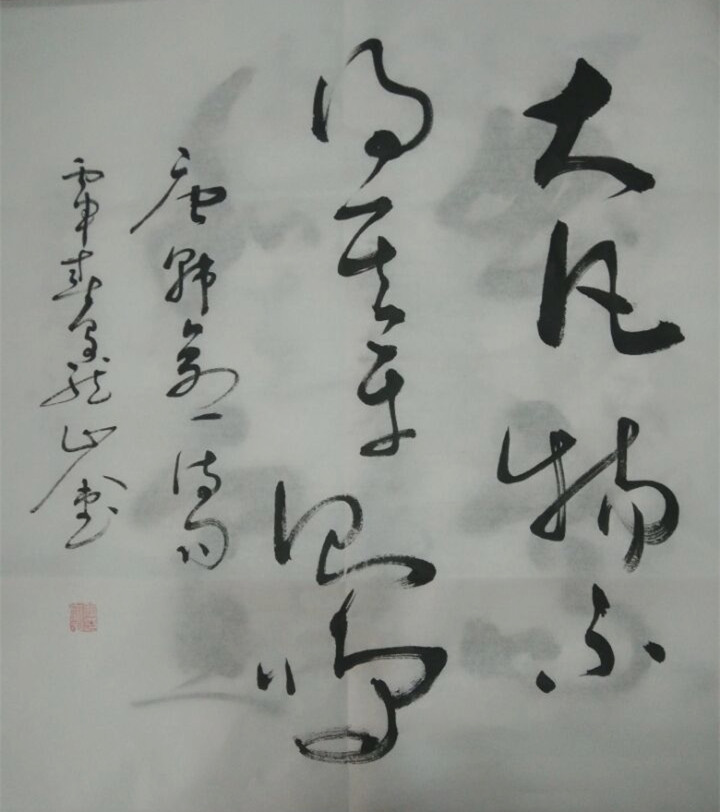 大凡物不
得其平则鸣
唐韩愈一诗句